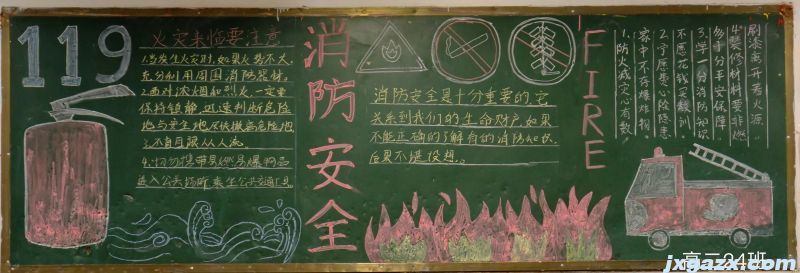 119
火灾来临要注意
1.当发生火灾时,如果火势不大,
充分利用周围消防器材。
2.面对浓烟和烈火,一定要
保持镇静,迅速判断危险
地与安全地
不盲目跟从人流
4.切勿携带易燃易爆物品
进入公共场所来坐公共交通工具
消防安全
消防安全是十分重要的,它
关系到我们的生命财产,如果
不能正确的了解有的消防知识,
后果不堪设想。
FIRE
刷漆离开秀火源
4.装修材料要非燃
多十分平安保障
3.学一分消防知识
不愿花钱买教训
2.宁愿费心除隐患
家中不存爆炸物
1.防火减灾心有数
高二24班
jxgazx.com